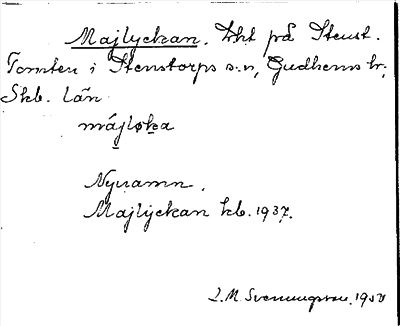 Majlyckan. Lht på Stenst.
Tomten i Stenstorps s:n, Gudhems hr;
Skb. län
májløka
Nynamn.
Majlyckan kb. 1937.
L.M. Svenungsson. 1950